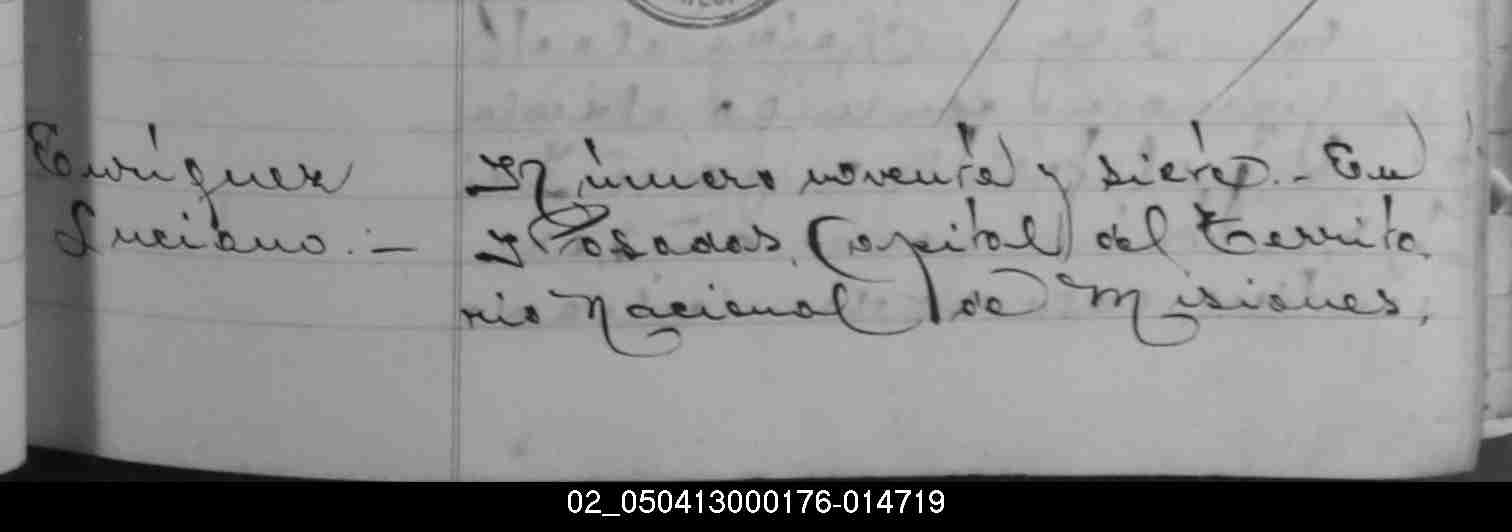 Enriquez
Luciano. –
Número noventa y siete. – En
Posadas, Capital del Territo
rio Nacional de Misiones,
02_050413000176-014719